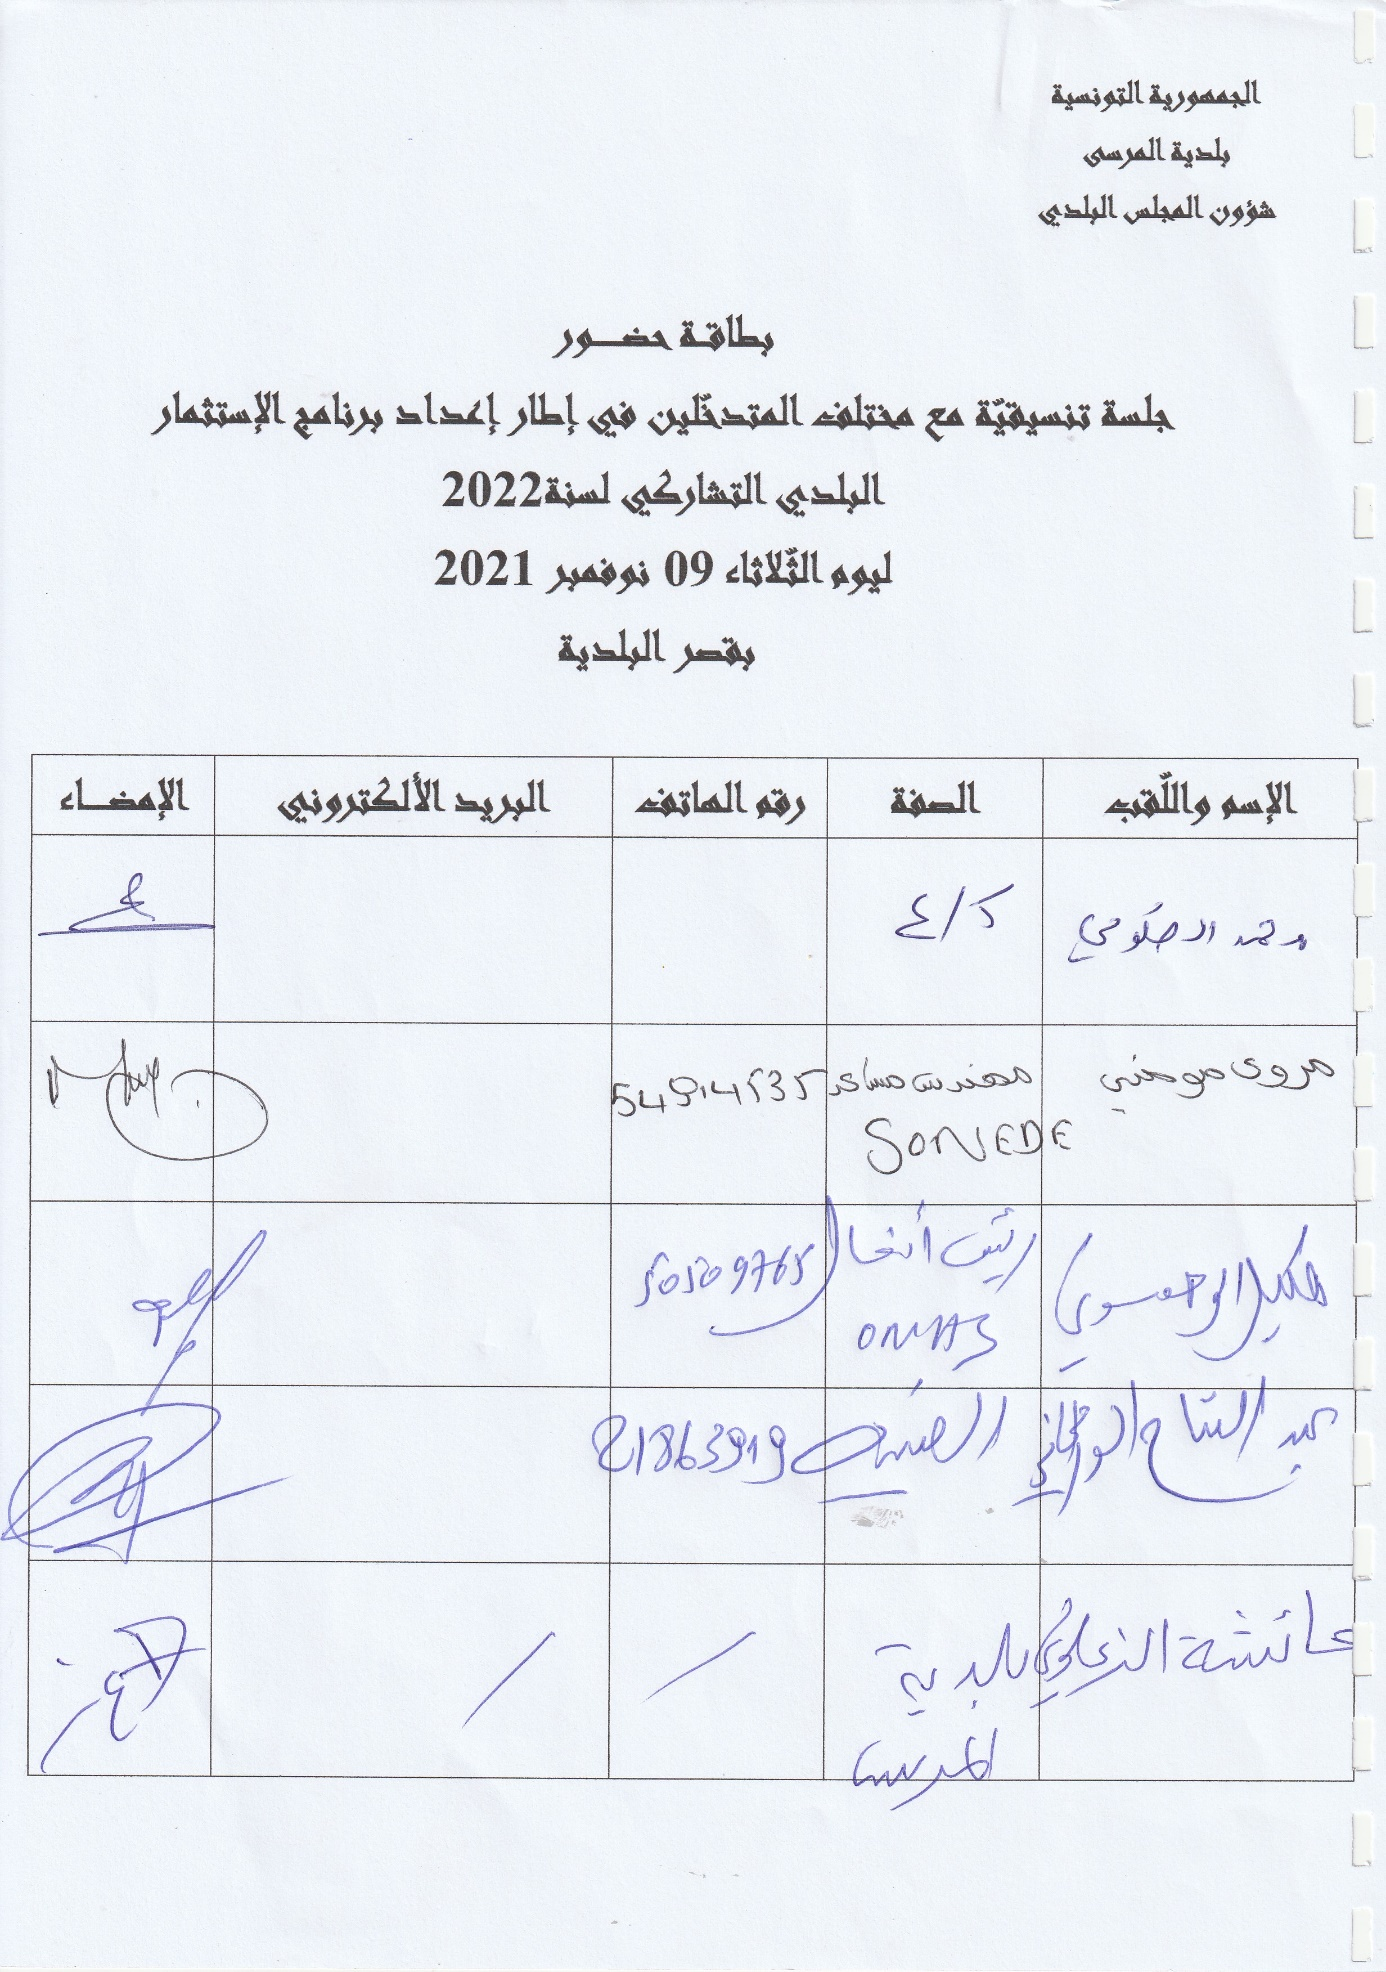 الجمهورية التونسية
بلدية المرسى
شؤون المجلس البلدي
بطاقة حضور
جلسة تنسيقيّة مع مختلف المتدخّلين في إطار إعداد برنامج الإستثمار
البلدي التشاركي لسنة2022
ليوم الثّلاثاء 09 نوفمبر 2021
بقصر البلدية
الإسم واللّقب الصفة رقم الهاتف البريد الألكتروني الإمضاء
محمد
مروى مهندس مساعد 54914535
SONEDE
رئيس أشغال 50509765
ONAS
عبد الفتاح 21863919
عائشة بلدية
المرسى